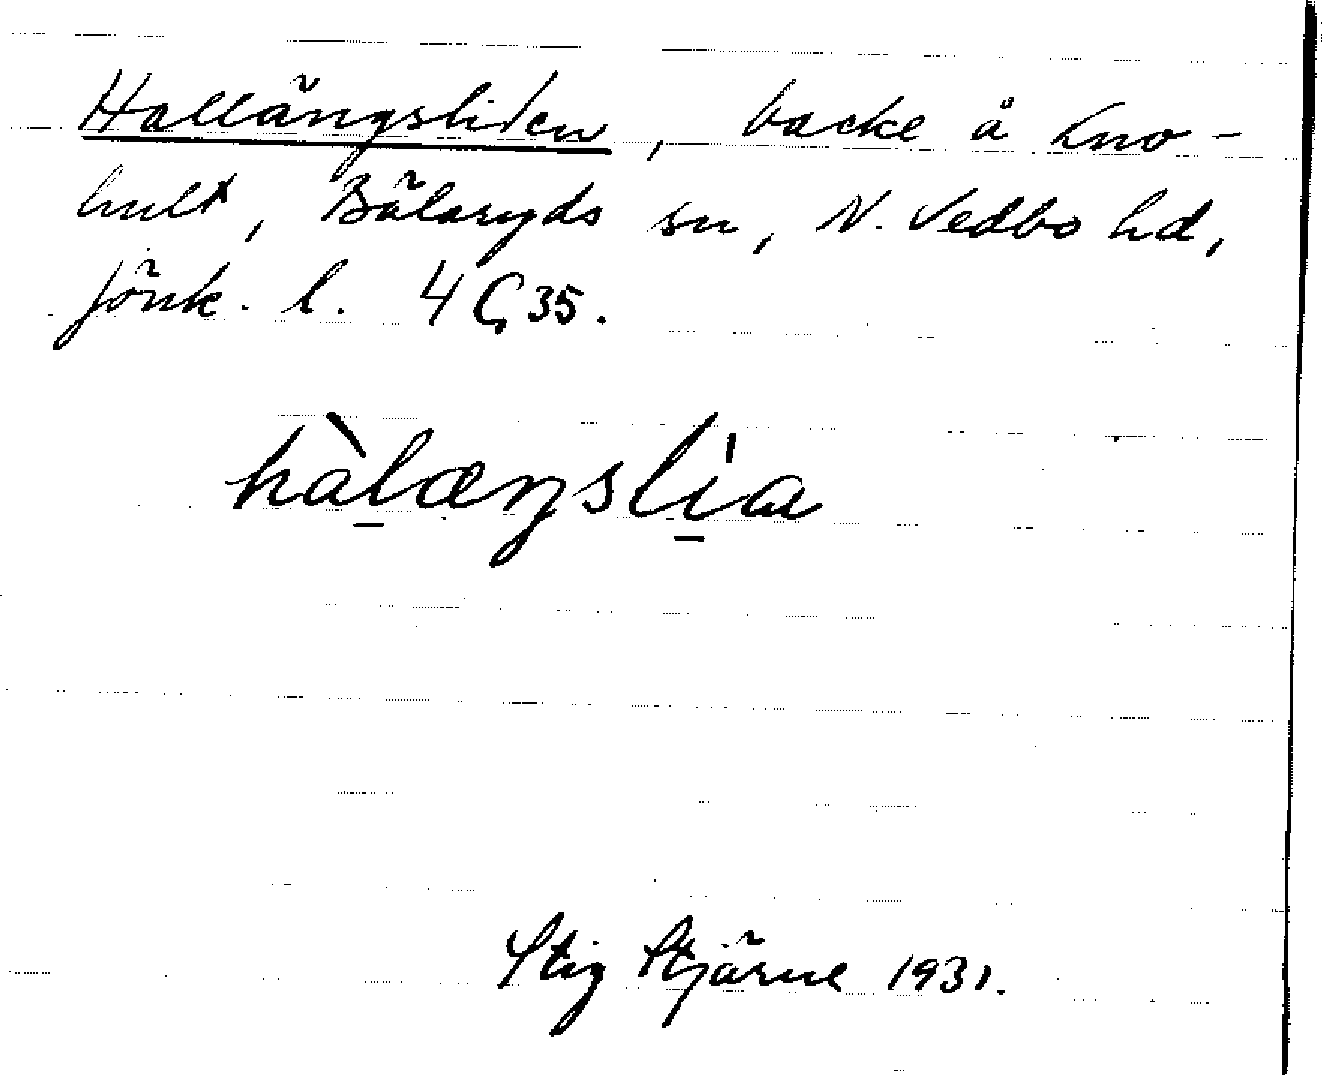 Hallängsliden, backe å Kno-
hult, Bälaryds sn, N. Vedbo hd,
Jönk. l. 4 Ç 35.
hàl̠æŋsl̠i̍a
Stig Stjärne 1931.